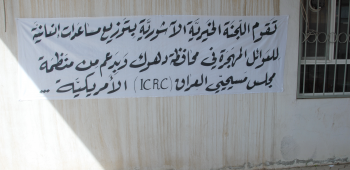 تقوم اللجنة الخيرية الآشورية بتوزيع مساعدات إنسانية
للعوائل المهجرة في محافظة دهوك وبدعم من منظمة
مجلس مسيحيي العراق (ICRC) الأمريكية ...